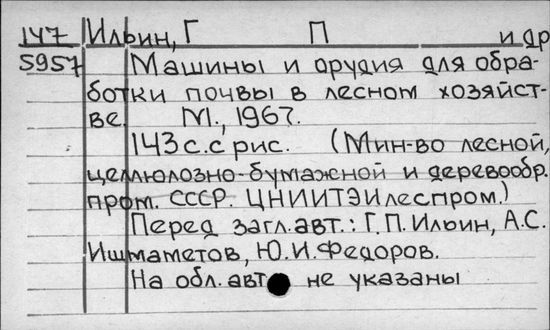 147 Ильин, Г П и др
5957 Машины и орудия для обра-
ботки почвы в лесном хозяйст-
ве. М., 1967.
143 с. с рис. (Мин-во лесной,
целлюлозно-бумажной и деревообр.
пром. СССР. ЦНИИТЭИлеспром.)
Перед загл. авт.: Г. П. Ильин, А. С.
Ишмаметов, Ю. И. Федоров.
На обл. авт не указаны